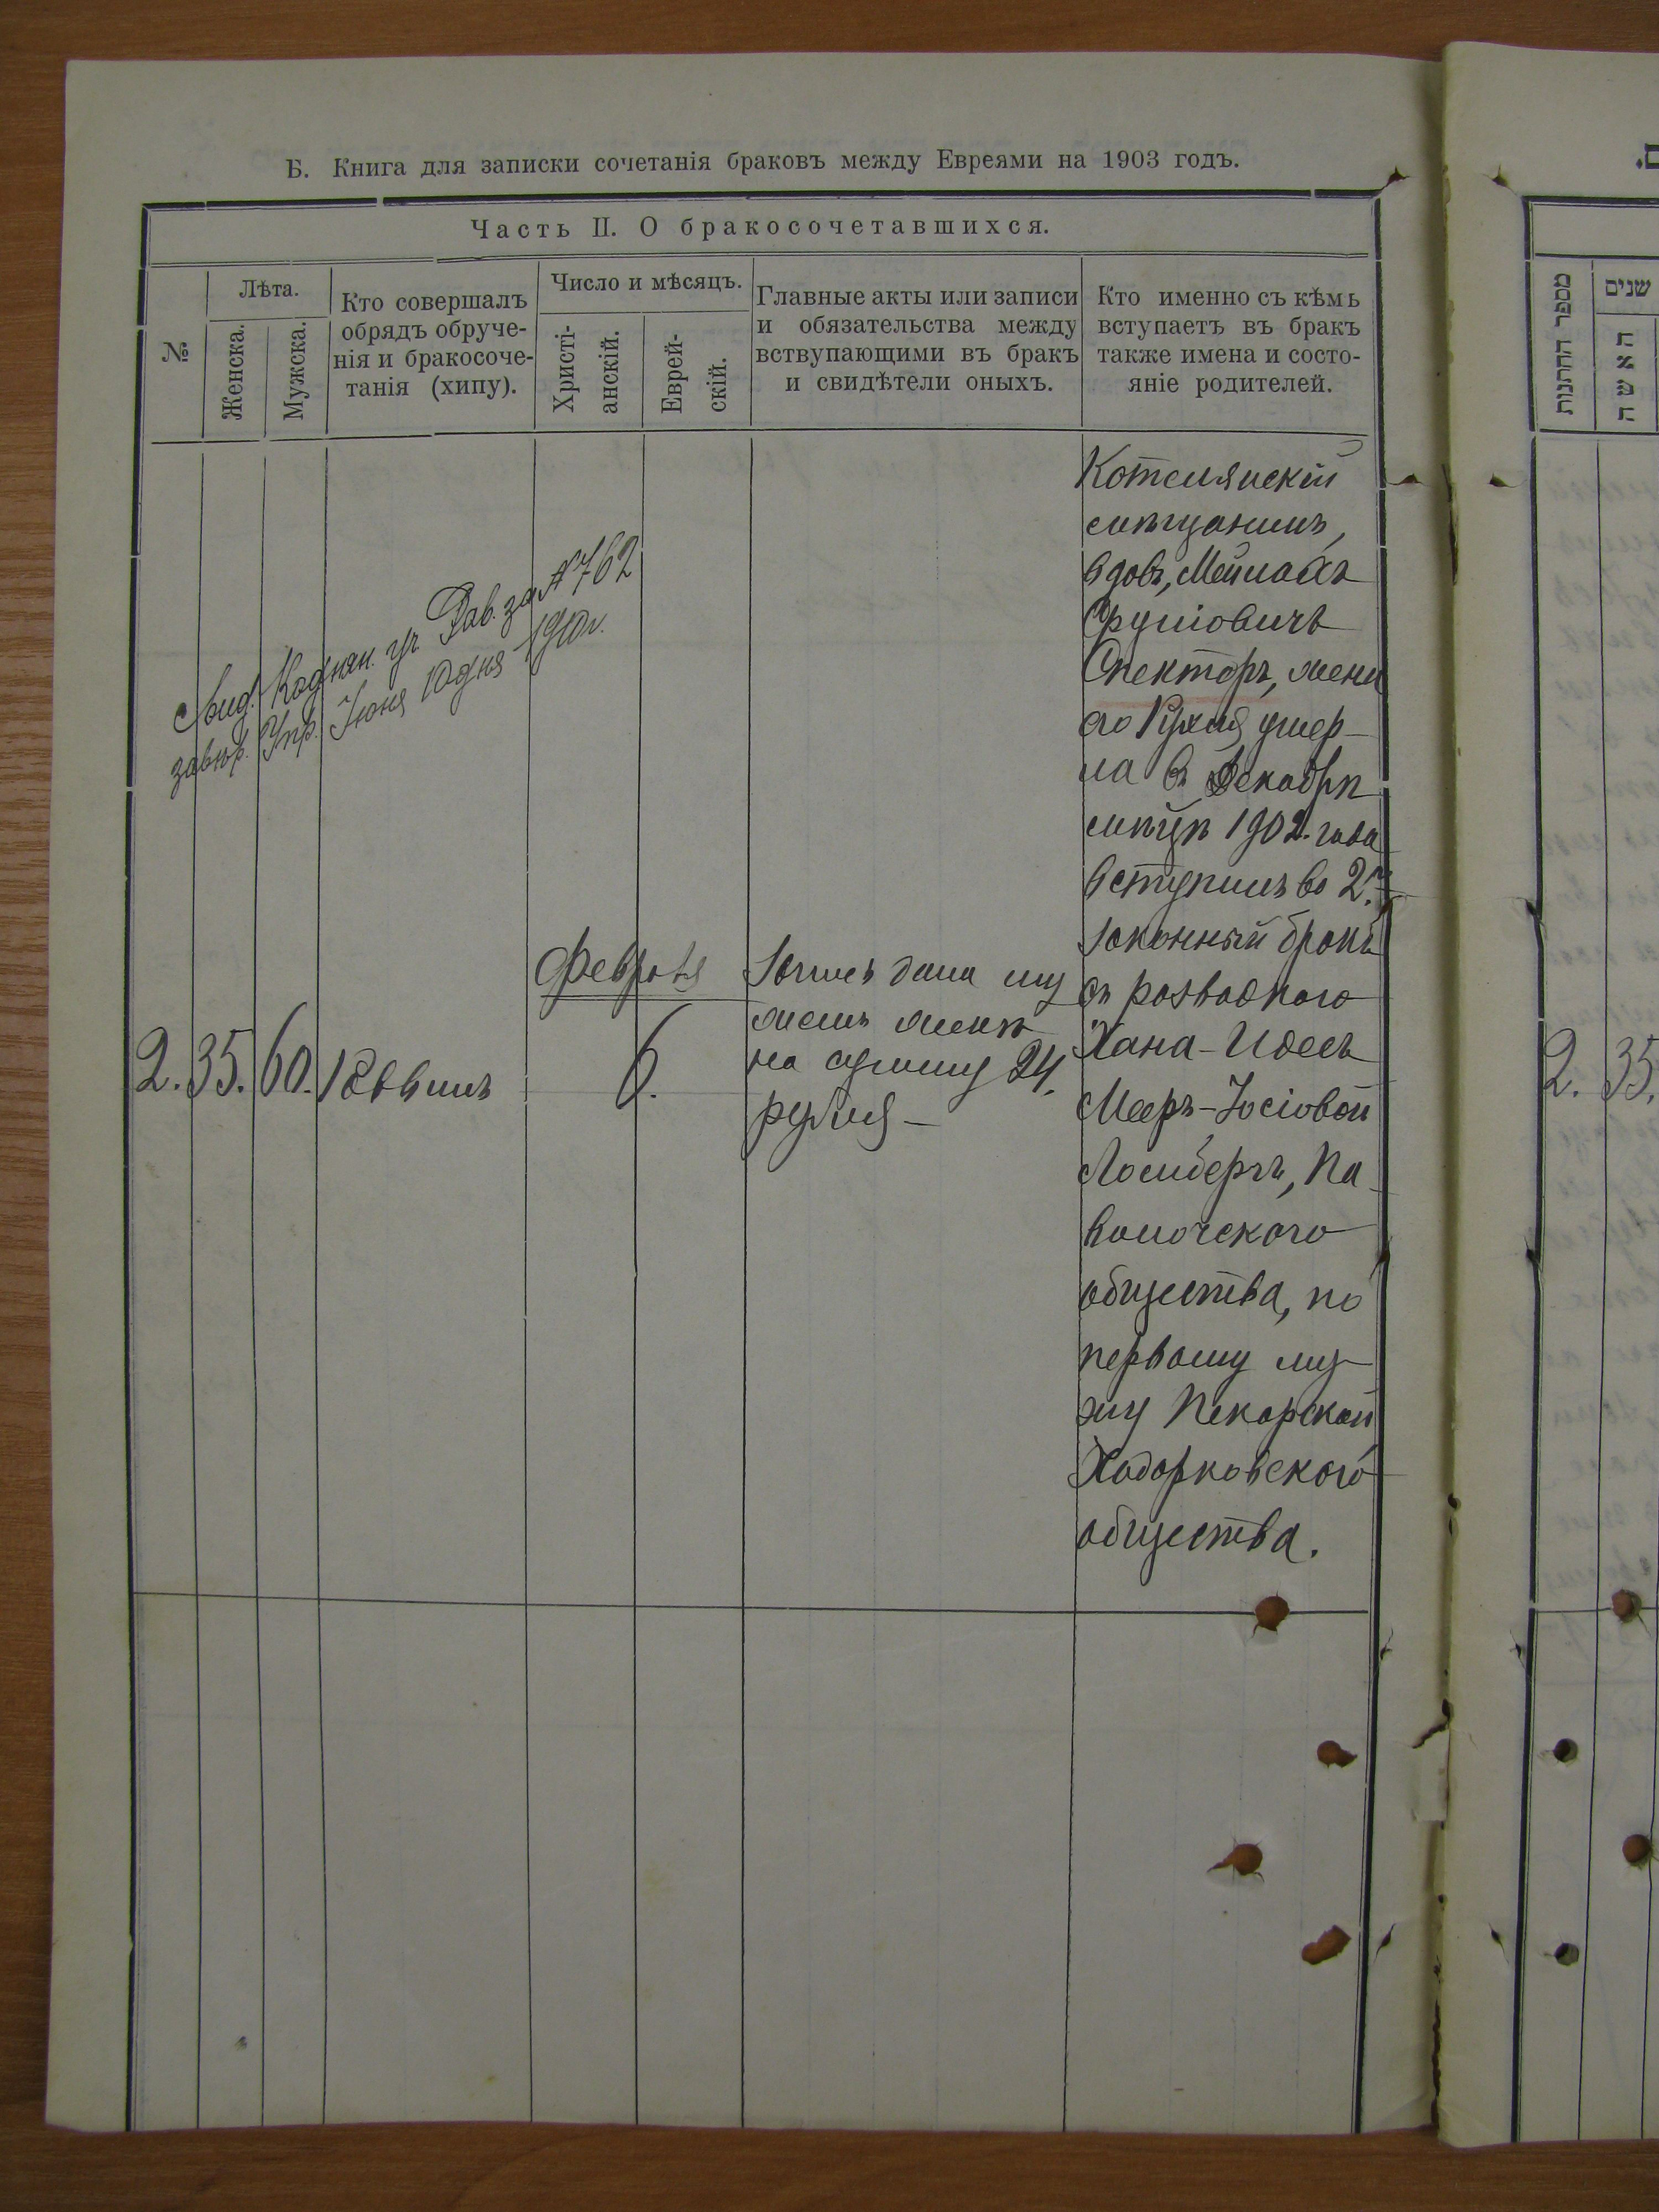 Б. Книга для записки сочетанія браковъ между Евреями на 1903 годъ.
Часть II. О бракосочетавшихся.
№
Лѣта.
Женска.
Мужска.
Кто совершалъ
обрядъ обруче-
нія и бракосоче-
танія (хипу).
Число и мѣсяцъ.
Христі-
анскій.
Еврей-
скій.
Главные акты или записи
и обязательства между
вствупающими въ бракъ
и свидѣтели оныхъ.
Кто именно съ кѣмъ
вступаетъ въ бракъ
также имена и состо-
яніе родителей.
Рав. за № 762
Упр. Іюня 10 дня 1910 г.
2. 35. 60.
Февраля
6.
Запись дана му
жемъ женѣ
на сумму 24.
рубля –
Котелянскій
мѣщанинъ,
вдов, Мейлахъ
Сруліовичъ
Спекторъ, жена
его Рухля умер-
ла въ Декабрѣ
мѣцѣ 1902. года
вступилъ во 2й
законный бракъ
съ разводкого
Хана-Идесъ
Мееръ-Іосіовой
Ломбергъ, Па-
волочского
общества, по
первому му-
жу Пекарской
Ходорковского
общества.
מספר החתנות
שנים
האשה
2. 35.